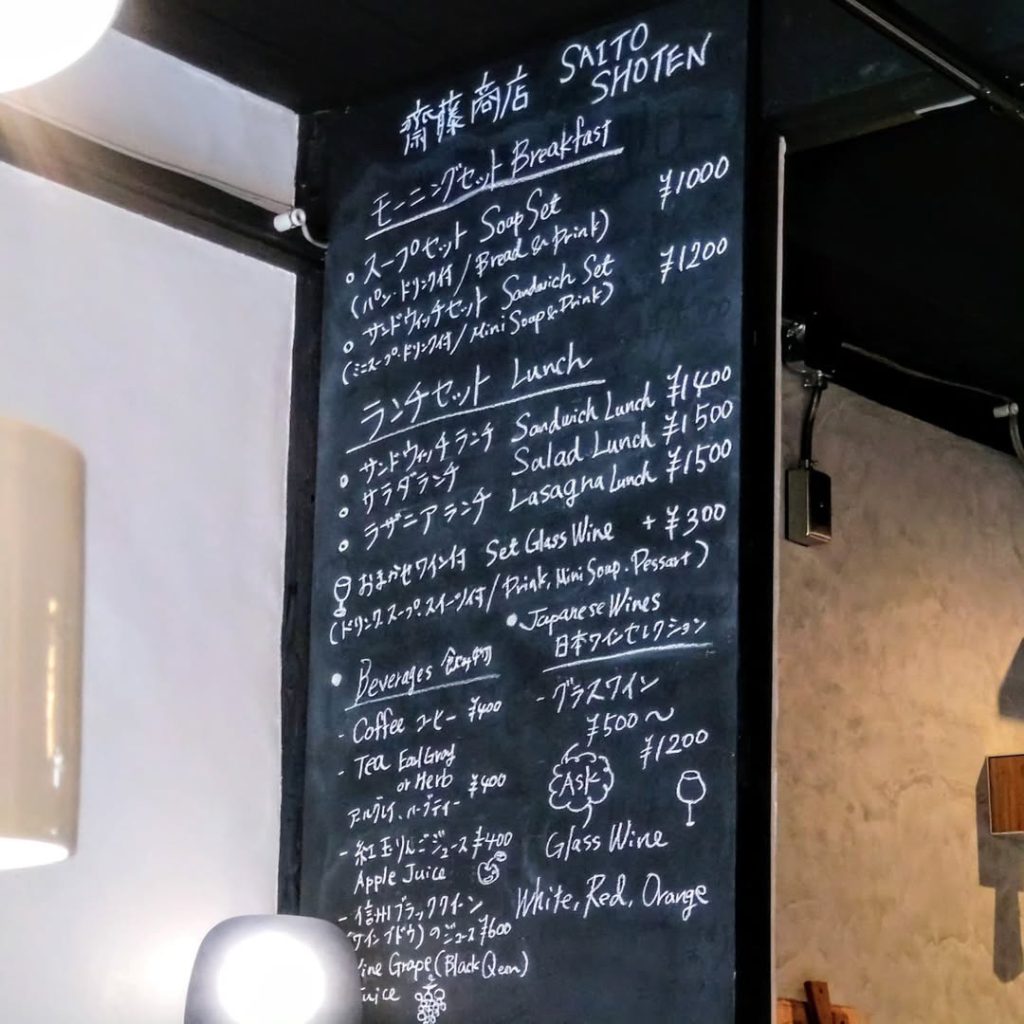 齋藤商店 SAITO SHOTEN
モーニングセット Breakfast
スープセット Soap Set ¥1000
(パン・ドリンク付/Bread & Drink)
サンドウィッチセット Sandwich Set ¥1200
(ミニスープ・ドリンク付/Mini Soap & Drink)
ランチセット Lunch
サンドウィッチランチ Sandwich Lunch ¥1400
サラダランチ Salad Lunch ¥1500
ラザニアランチ Lasagna Lunch ¥1500
おまかせワイン付 Set Glass Wine + ¥300
(ドリンク、スープ、スイーツ付/Drink, Mini Soap. Pessart)
Beverages 飲み物
- Coffee コーヒー ¥400
- Tea Earl Gray
or Herb ¥400
アールグレイ、ハーブティー
- 紅玉りんごジュース ¥400
Apple Juice
- 信州ブラッククイーン
(ワインブドウ)のジュース ¥600
Wine Grape (Black Qeen)
Juice
Japanese Wines
日本ワインセレクション
- グラスワイン
¥500〜
¥1200
Ask
Glass Wine
White, Red, Orange